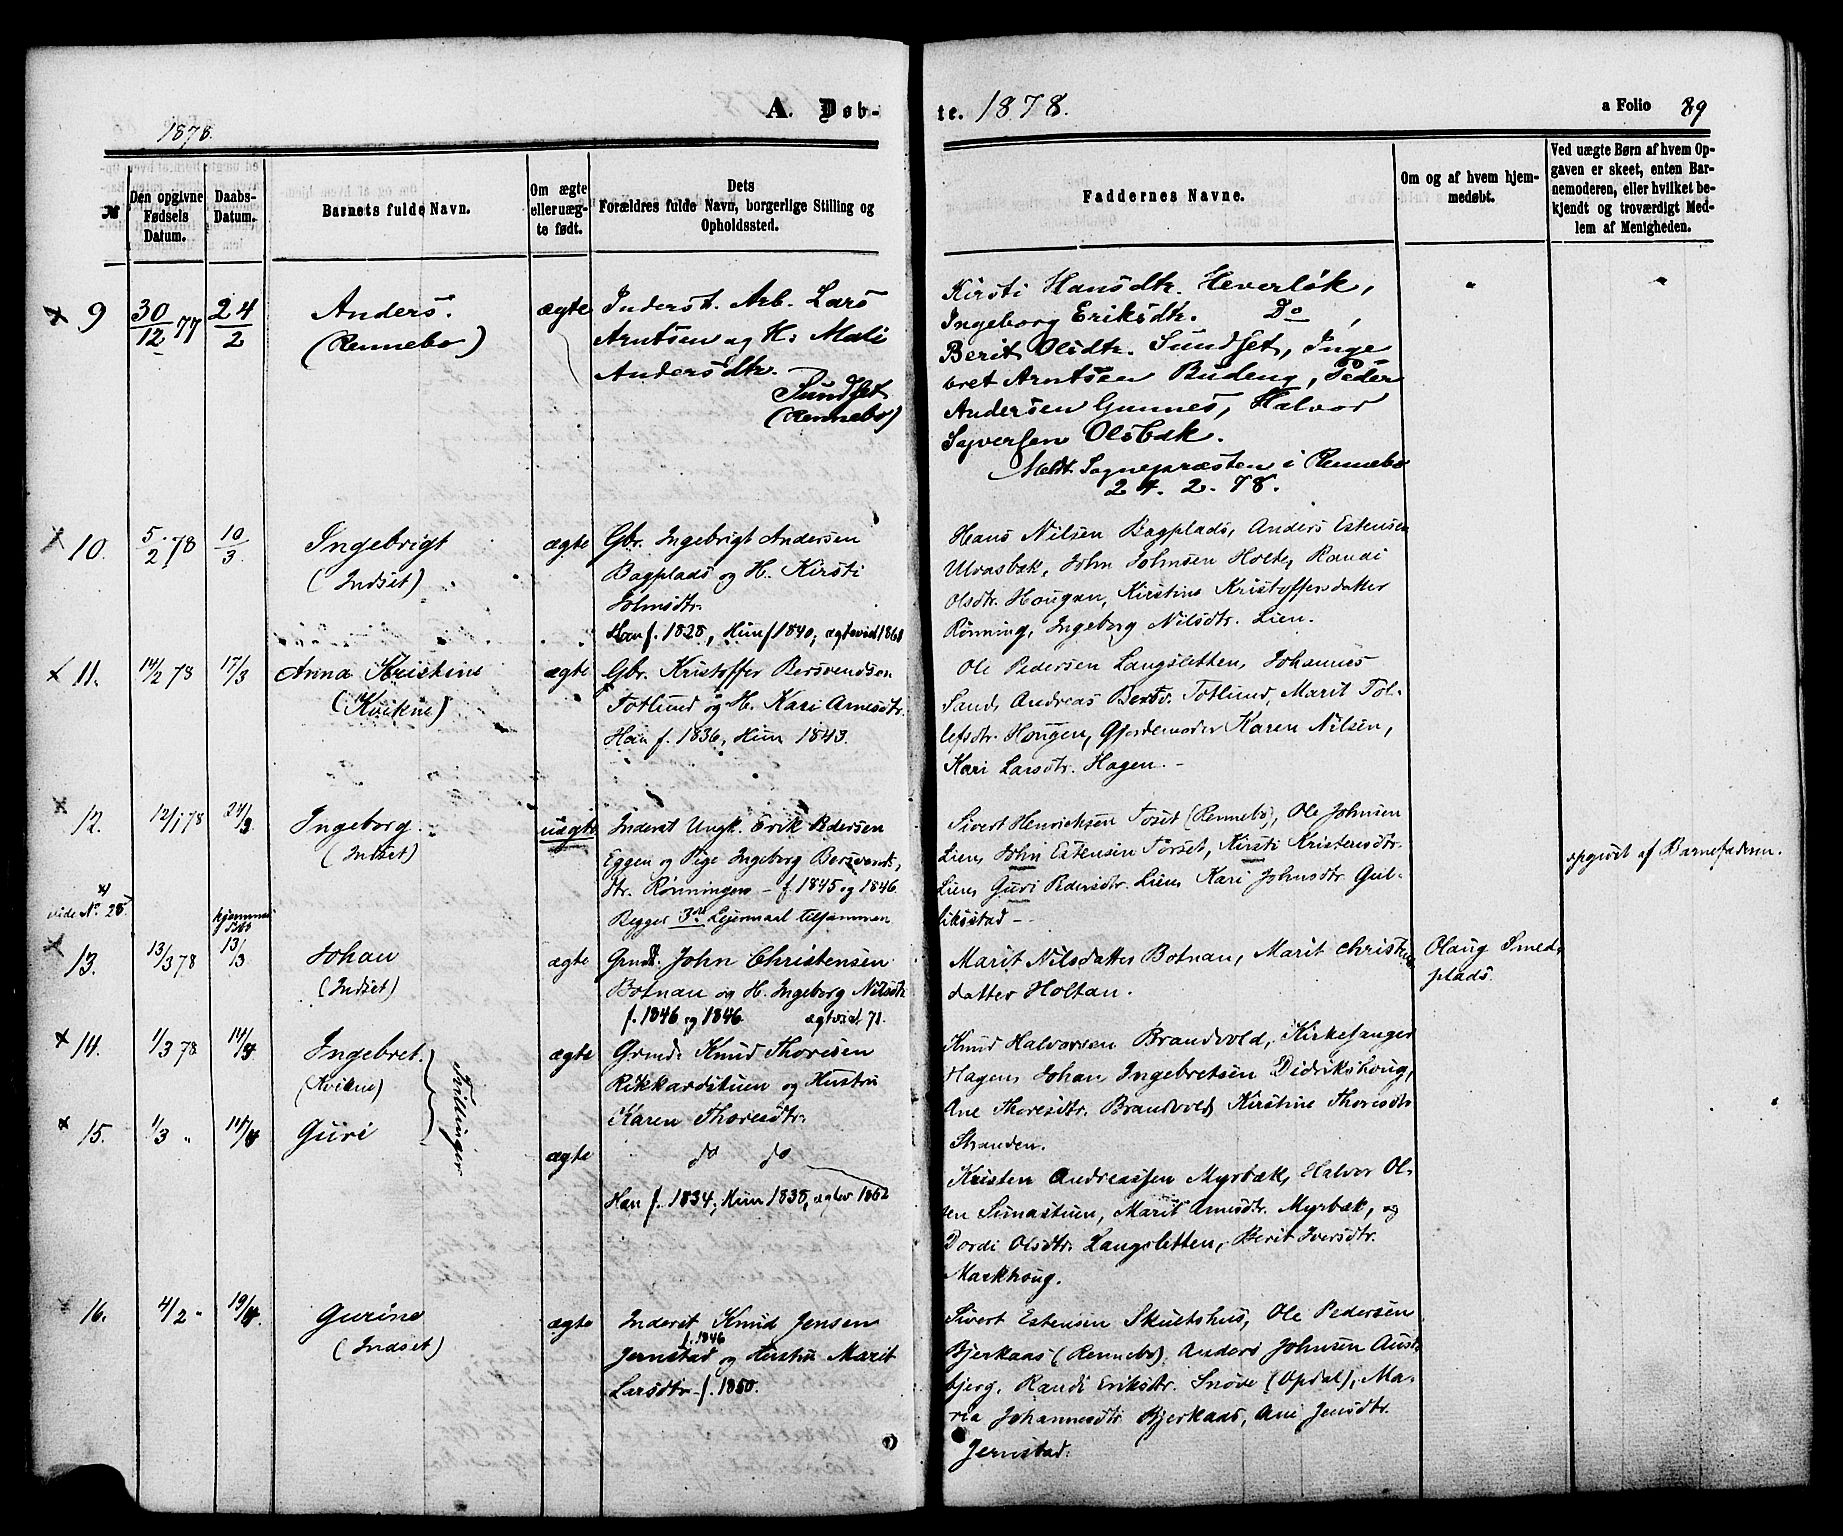 1878.
A. Døb-
te. 1878.
a Folio 89
№
Den opgivne Fødsels Datum.
Daabs-Datum.
Barnets fulde Navn.
Om ægte eller uægte født.
Dets
Forældres fulde Navn, borgerlige Stilling og
Opholdssted.
Faddernes Navne.
Om og af hvem hjem-
medøbt.
Ved uægte Børn af hvem Op-
gaven er skeet, enten Bar-
nemoderen, eller hvilket be-
kjendt og troværdigt Med-
lem af Menigheden.
9 30/12 77 24/2 Anders. ægte Inderst. Arb. Lars
(Rennebo) Arntsen og H: Mali
Andersdtr.
Sundset
(Rennebo)
Kirsti Hansdtr. Heverløk,
Ingeborg Eriksdtr. Do,
Berit Olsdtr. Sundset, Inge
bret Arntsen Budeng, Peder
Andersen Gunnes, Halvor
Syversen Olsbak.
Meldt Sognepræsten i Rennebo
24. 2. 78.
10. 5/2 78 10/3 Ingebrigt ægte Gbr. Ingebrigt Andersen
(Indset) Bagplads og H. Kirsti
Johnsdtr.
Han f. 1828, Hun f 1840, egtevid 1861
Hans Nilsen Bagplads, Anders Estensen
Ulvasbak, John Johnsen Holte, Randi
Olsdtr. Hougan, Kirstine Kristoffersdatter
Rønning, Ingeborg Nilsdtr. Lien.
11. 14/2 78 17/3 Anna Kristine ægte Gbr. Kristoffer Bersvendsen
(Kvikne) Totlund og H. Kari Arnesdtr.
Han f. 1836, Hun 1843.
Ole Pedersen Langsletten, Johannes
Sand, Andreas Bersv. Totlund, Marit Tol-
lefsdtr. Hougen, Gjordemoder Karen Nilsen,
Kari Larsdtr. Hagen.-
12. 12/1 78 24/3 Ingeborg. uægte Inderst Ungk. Erik Pedersen
(Indset) Eggen og Pige Ingeborg Bersvends
dtr. Rønningen - f. 1845 og 1846
vide No. 28. Begges 3die Leiermaal tilsammen
Sivert Henrichsen Toset (Rennebo), Ole Johnsen
Lien, John Estensen Torset, Kirsti Kristensdtr.
Lien, Guri Pedersdtr. Lien, Kari Johnsdtr Gul-
liksstad -
opgivet af Barnefaderen.
hjemme
døbt
13. 13/3 78 13/3 Johan ægte Grndb. John Christensen
(Indset) Botnan og H. Ingeborg Nilsdtr
f. 1846 og 1846 egtvid 71.
Marit Nilsdatter Botnan, Marit Christens
datter Holtan.
Olaug Smed-
plads.
14. 1/3 78 14/4 Ingebret. ægte Grundb. Knud Thoresen
(Kvikne) Rikkardstuen og Hustru
Karen Thoresdtr.
Tvillinger
Knud Halvorsen Brandvold, Kirkesanger
Hagen, Johan Ingebretsen Didrikshoug,
Ane Thoresdtr. Brandvold, Kirstine Thoresdtr
Stranden.
15. 1/3 " 14/4 Guri ægte do do
Han f. 1834, Hun 1838, egtev 1862
Kristen Andreassen Myrbæk, Halvor Ol-
sen Simastuen, Marit Arnesdtr. Myrbæk, og
Dordi Olsdtr. Langsletten, Berit Iversdtr.
Markhoug.
16. 4/2 " 19/4. Gurine ægte Inderst Knud Jensen
f. 1846
(Indset) Jernstad og Hustru Marit
Larsdtr f. 1850.
Sivert Estensen Skultshus, Ole Pedersen
Bjerkaas (Rennebo), Anders Johnsen Aust-
bjerg, Randi Eriksdtr. Snøve (Opdal), Ma-
ria Johannesdtr Bjerkaas, Ane Jensdtr.
Jernstad.